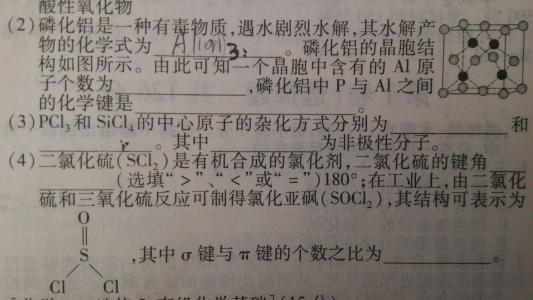 酸性氧化物
(2)磷化铝是一种有毒物质,遇水剧烈水解,其水解产
物的化学式为 Al(OH)3. 。磷化铝的晶胞结
构如图所示。由此可知一个晶胞中含有的 Al 原
子个数为 ,磷化铝中 P 与 Al 之间
的化学键是 。
(3)PCl3和 SiCl4的中心原子的杂化方式分别为 和
。其中 为非极性分子。
(4)二氯化硫(SCl2)是有机合成的氯化剂,二氯化硫的键角
(选填“>”、“<”或“=”)180°;在工业上,由二氯化
硫和三氧化硫反应可制得氯化亚砜(SOCl2),其结构可表示为
O
S
Cl Cl
,其中 σ 键与 π 键的个数之比为 。